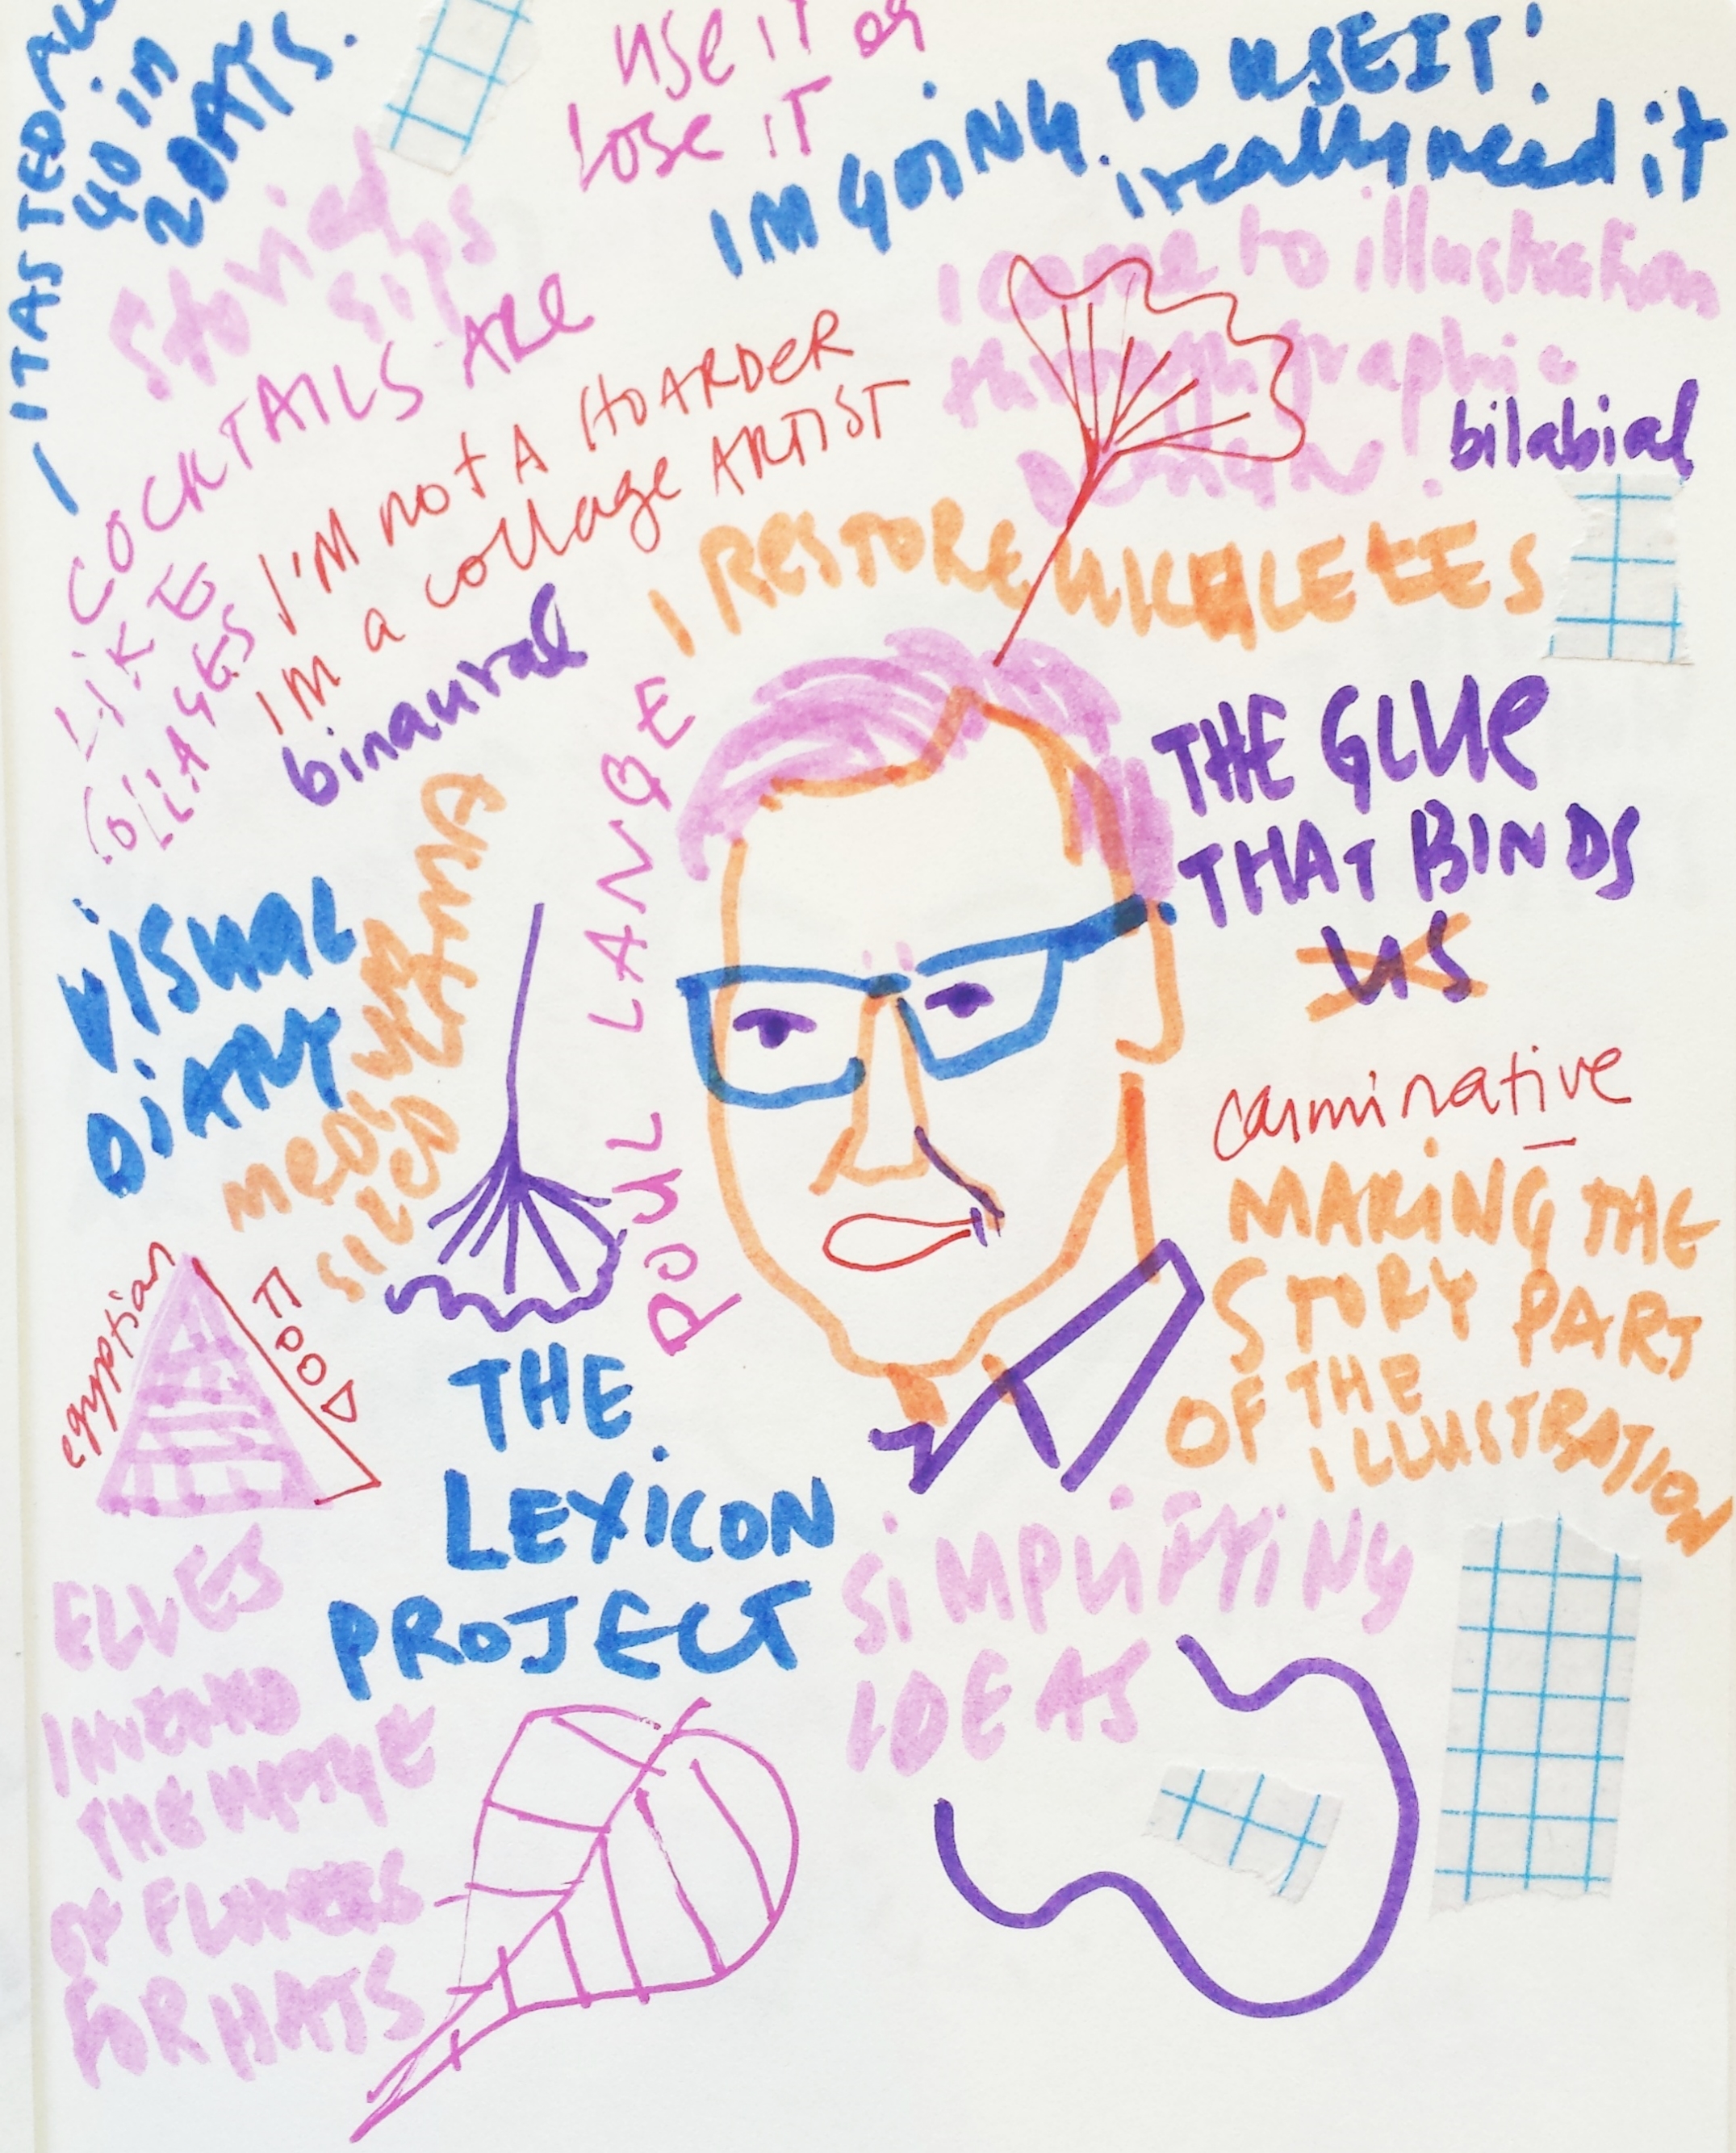 I TASTED ALL
40 in
2 DAYS.
use it or
lose it
I'M GOING TO USE IT!
i really need it
Stories
sips
COCKTAILS ARE
LIKE
COLLAGES
I'M not A HOARDER
I'm a collage ARTIST
i come to illustration
through graphic
design.
bilabial
I RESTORE UKULELEES
binaural
POUL LANGE
THE GLUE
THAT BINDS
US
VISUAL
DIARY
carminative
MAKING THE
STORY PART
OF THE
ILLUSTRATION
egyptian
FOOD
THE
LEXICON
PROJECT
SIMPLIFYING
IDEAS
ELVES
THE
OF FLOWERS
FOR HATS